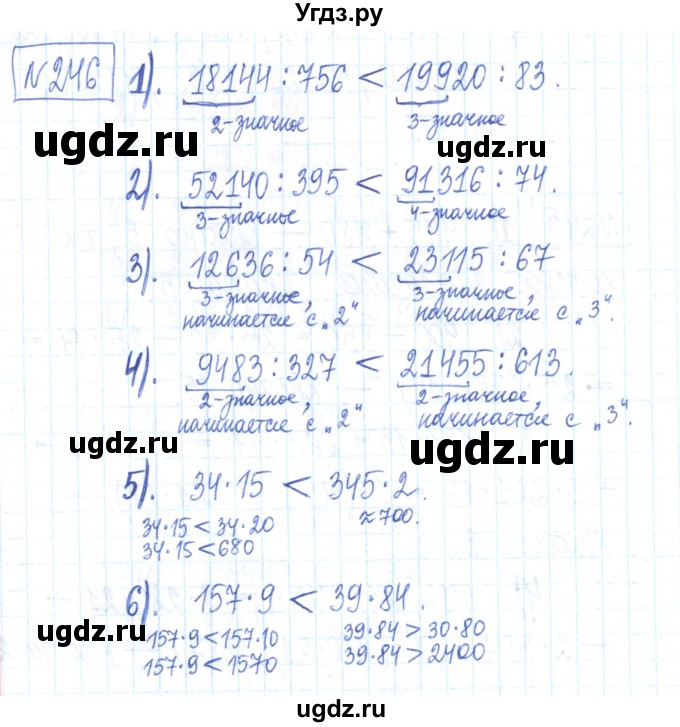 Угдз.ру
№246 1). 18144 : 756 < 19920 : 83.
2-значное 3-значное
ugdz.ru ugdz.ru
2). 52140 : 395 < 91316 : 74.
3-значное 4-значное
ugdz.ru ugdz.ru
3). 12636 : 54 < 23115 : 67
3-значное, 3-значное,
начинается с „2“ начинается с „3“.
4). 9483 : 327 < 21455 : 613.
2-значное, 2-значное,
начинается с „2“ начинается с „3“.
ugdz.ru ugdz.ru
5). 34·15 < 345·2.
34·15 < 34·20 ≈700.
34·15 < 680
ugdz.ru ugdz.ru
6). 157·9 < 39·84.
157·9 < 157·10 39·84 > 30·80
157·9 < 1570 39·84 > 2400
ugdz.ru ugdz.ru
ugdz.ru